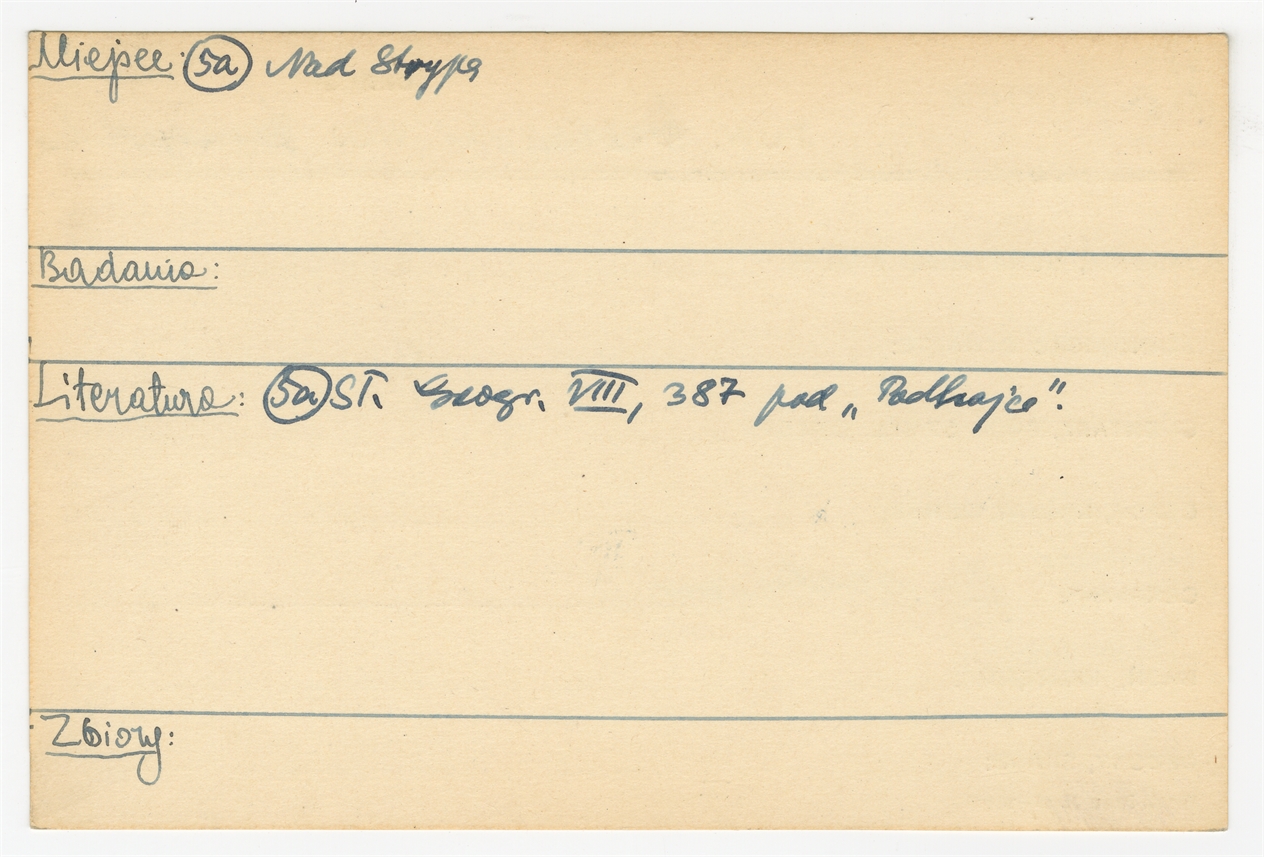 Miejsce: 5a Nad Strypą
Badania:
Literatura: 5a Sł. Geogr. VIII, 387 pod „Podhajce".
Zbiory: